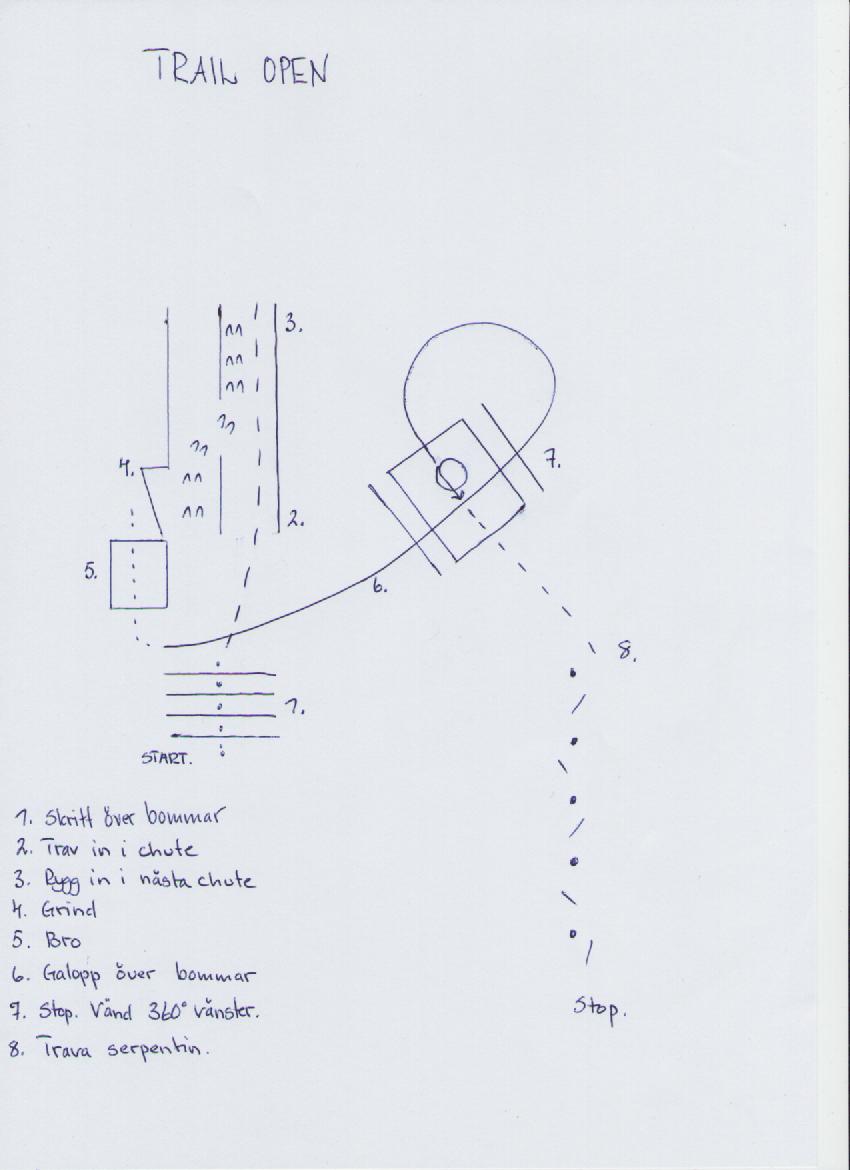 TRAIL OPEN
3.
4.
7.
2.
5.
6.
8.
1.
START.
1. Skritt över bommar
2. Trav in i chute
3. Rygg in i nästa chute
4. Grind
5. Bro
6. Galopp över bommar
7. Stop. Vänd 360° vänster.
8. Trava serpentin.
Stop.